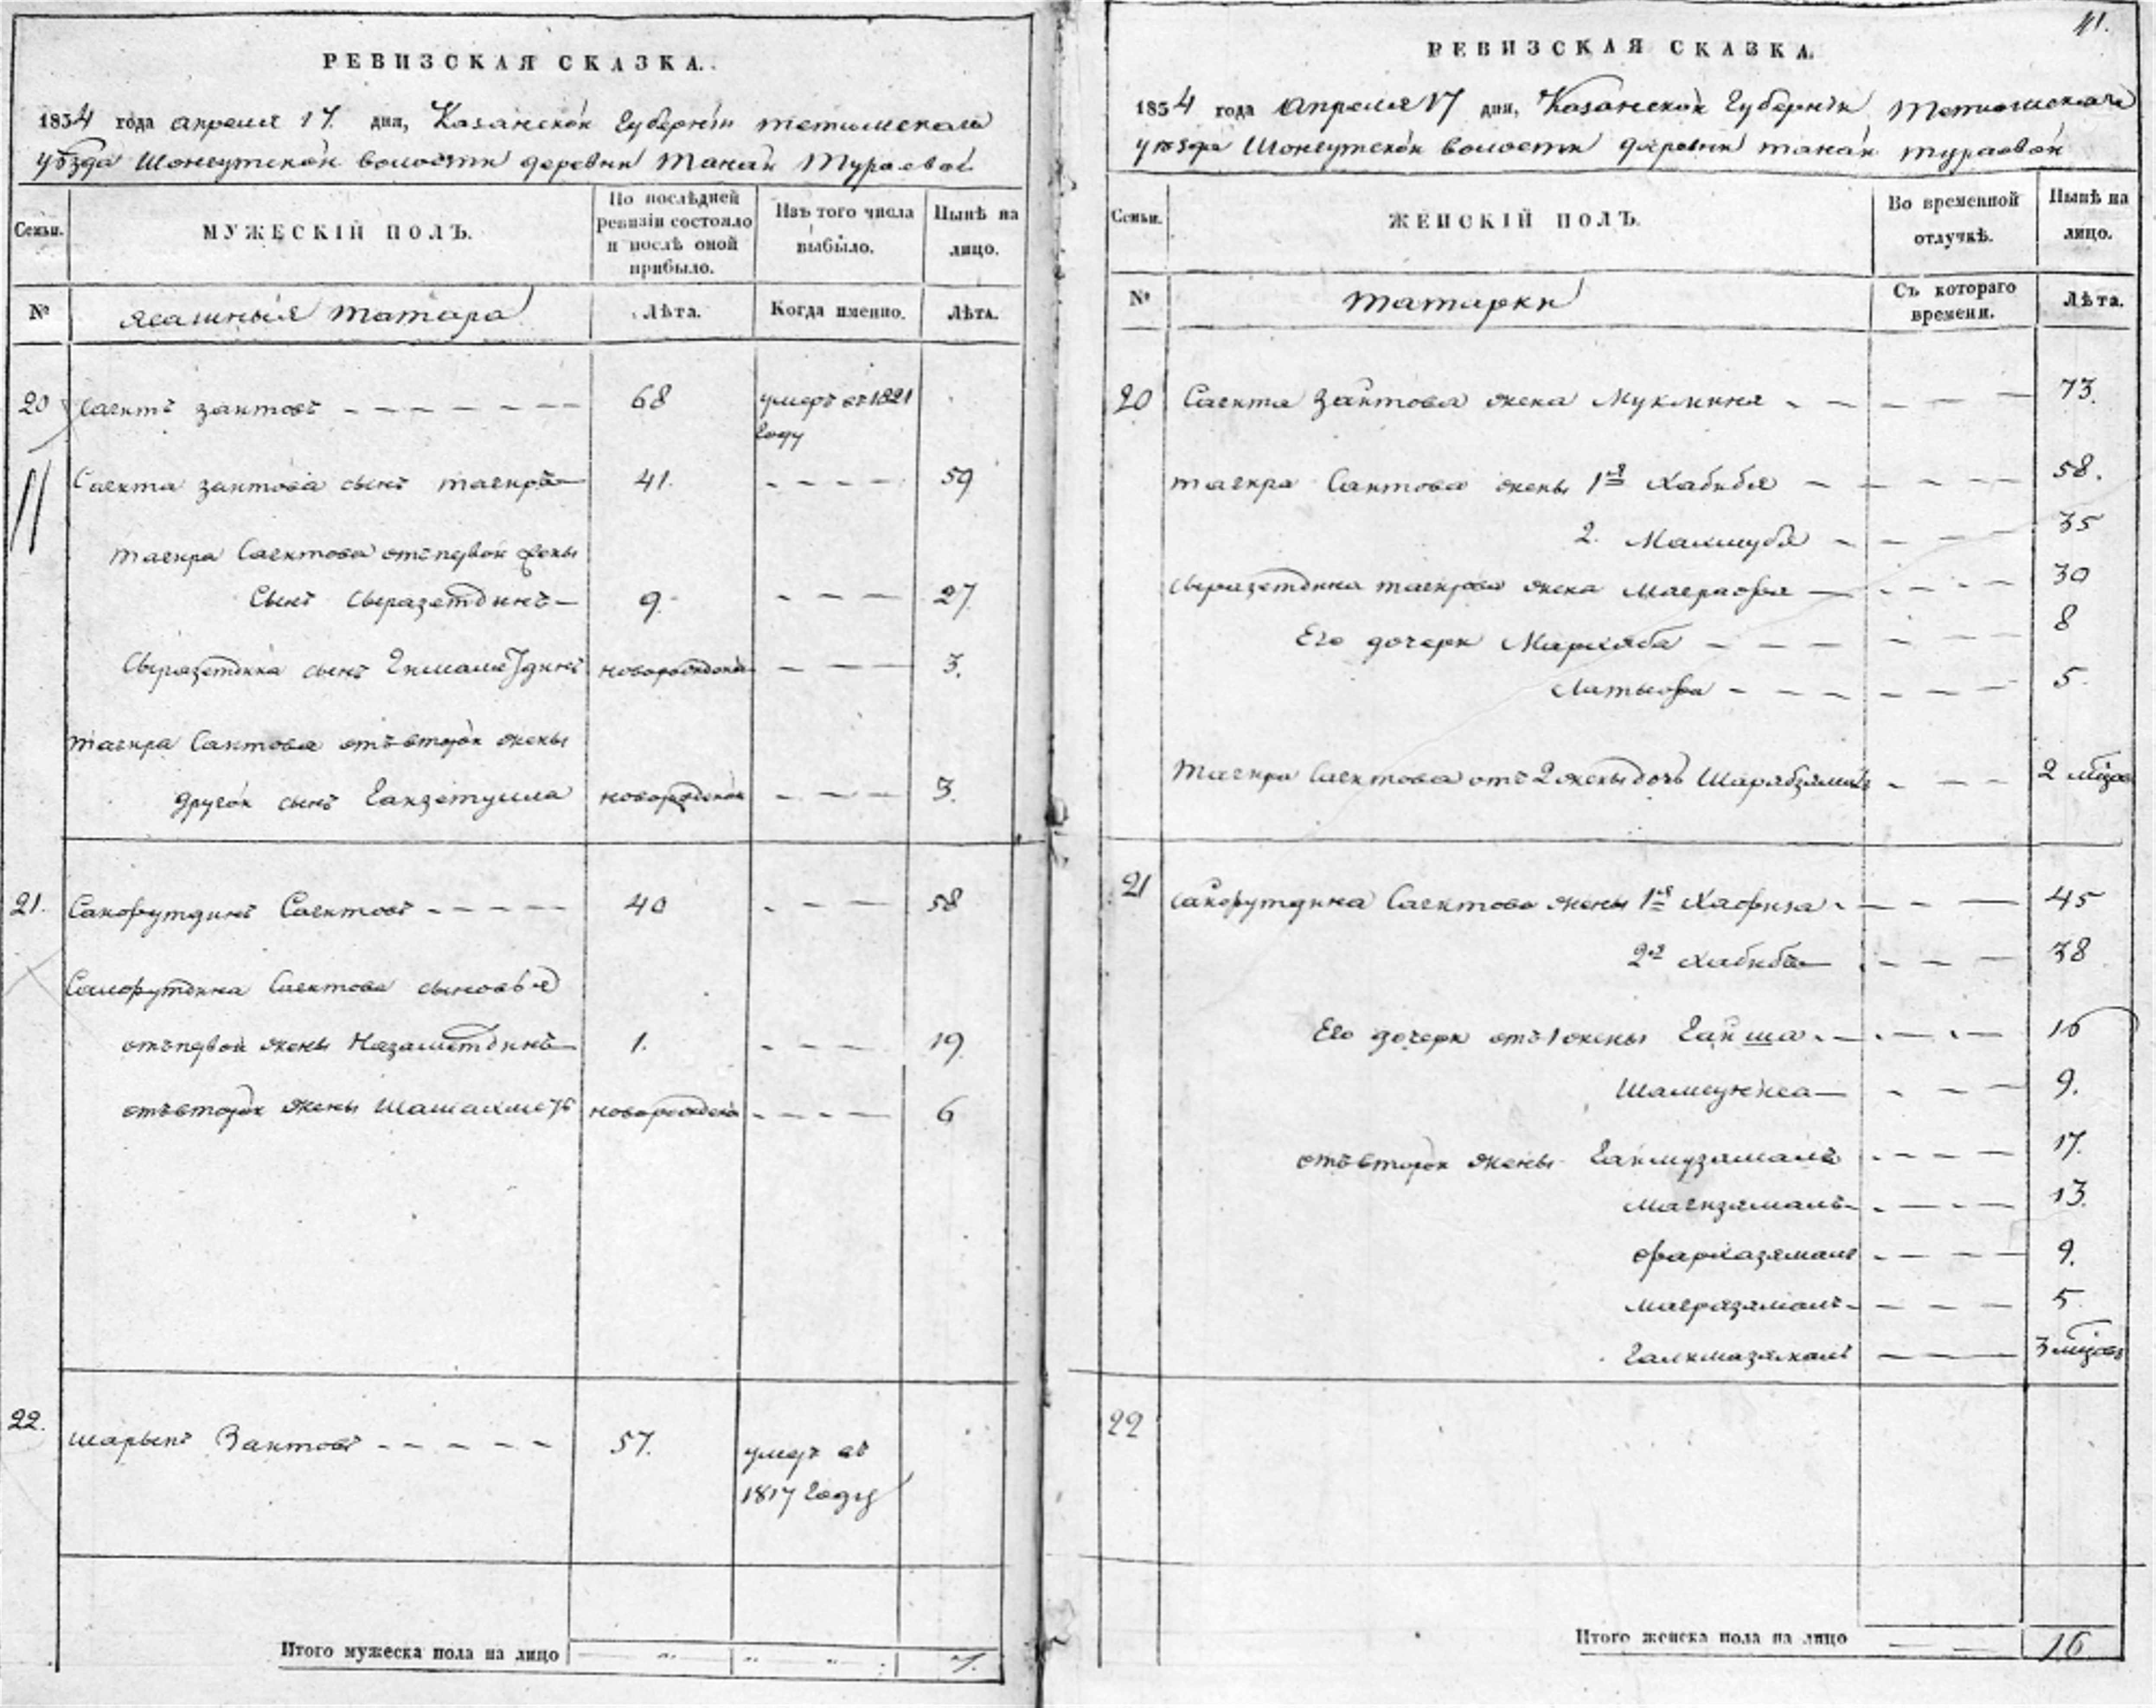 РЕВИЗСКАЯ СКАЗКА.
1834 года апреля 17. дня, Казанской Губернiи тетюшскаго
уѣзда Шонгутской волости деревни Танай Тураевой
Семьи.
МУЖЕСКІЙ ПОЛЪ.
По послѣдней ревизіи состояло и послѣ оной прибыло.
Изъ того числа выбыло.
Нынѣ на лицо.
№
ясашныя татара
Лѣта.
Когда именно.
Лѣта.
20 Сагитъ заитовъ - - - - - - - 68 умеръ въ 1821 году
Сагита заитова сынъ тагиръ 41. - - - - 59
тагира Сагитова отъ первой жены
сынъ Сыразетдинъ 9. - - - 27
Сыразетдина сынъ новорожденъ - - - 3.
тагира Саитова отъ второй жены
другой сынъ новорожденъ - - - 3.
21. Сайфутдинъ Сагитовъ - - - - - 40 - - - 58
Сайфутдина Сагитова сыновья
отъ первой жены Низаметдинъ 1. - - - 19
отъ второй жены Шашахметъ новорожденъ - - - - 6
22. шарыпъ Заитовъ - - - - - 57. умеръ въ
1817 году
Итого мужеска пола на лицо 7.
41.
РЕВИЗСКАЯ СКАЗКА.
1834 года апреля 17 дня, Казанской Губернiи Тетюшскаго
уѣзда Шонгутской волости деревни танай тураевой
Семьи.
ЖЕНСКІЙ ПОЛЪ.
Во временной отлучкѣ.
Нынѣ на лицо.
№
татарки
Съ котораго времени.
Лѣта.
20 Сагита Заитова жена Муклиня - - - - - 73.
тагира Саитова жены 1я Хабибя - - - - - 58.
2. Махшубя - - - - 35
Сыразетдина тагирова жена Маграфя - - - - 30
Его дочери Мархяба - - - - - - 8
Латыфа - - - - - - - 5.
Тагира Сагитова отъ 2 жены дочь - - - 2 мѣсяц
21 Сайфутдина Сагитова жены 1я Хафиза - - - - 45
2я хабиба - - - 38
Его дочери отъ 1 жены Гайша - - - - - 16
Шамсуниса - - - 9.
отъ второй жены - - - - 17.
Магизямалъ - - - - 13.
фархазямалъ - - - - 9.
магразямалъ - - - - 5.
- - 3 мѣсяц
22
Итого женска пола на лицо 16